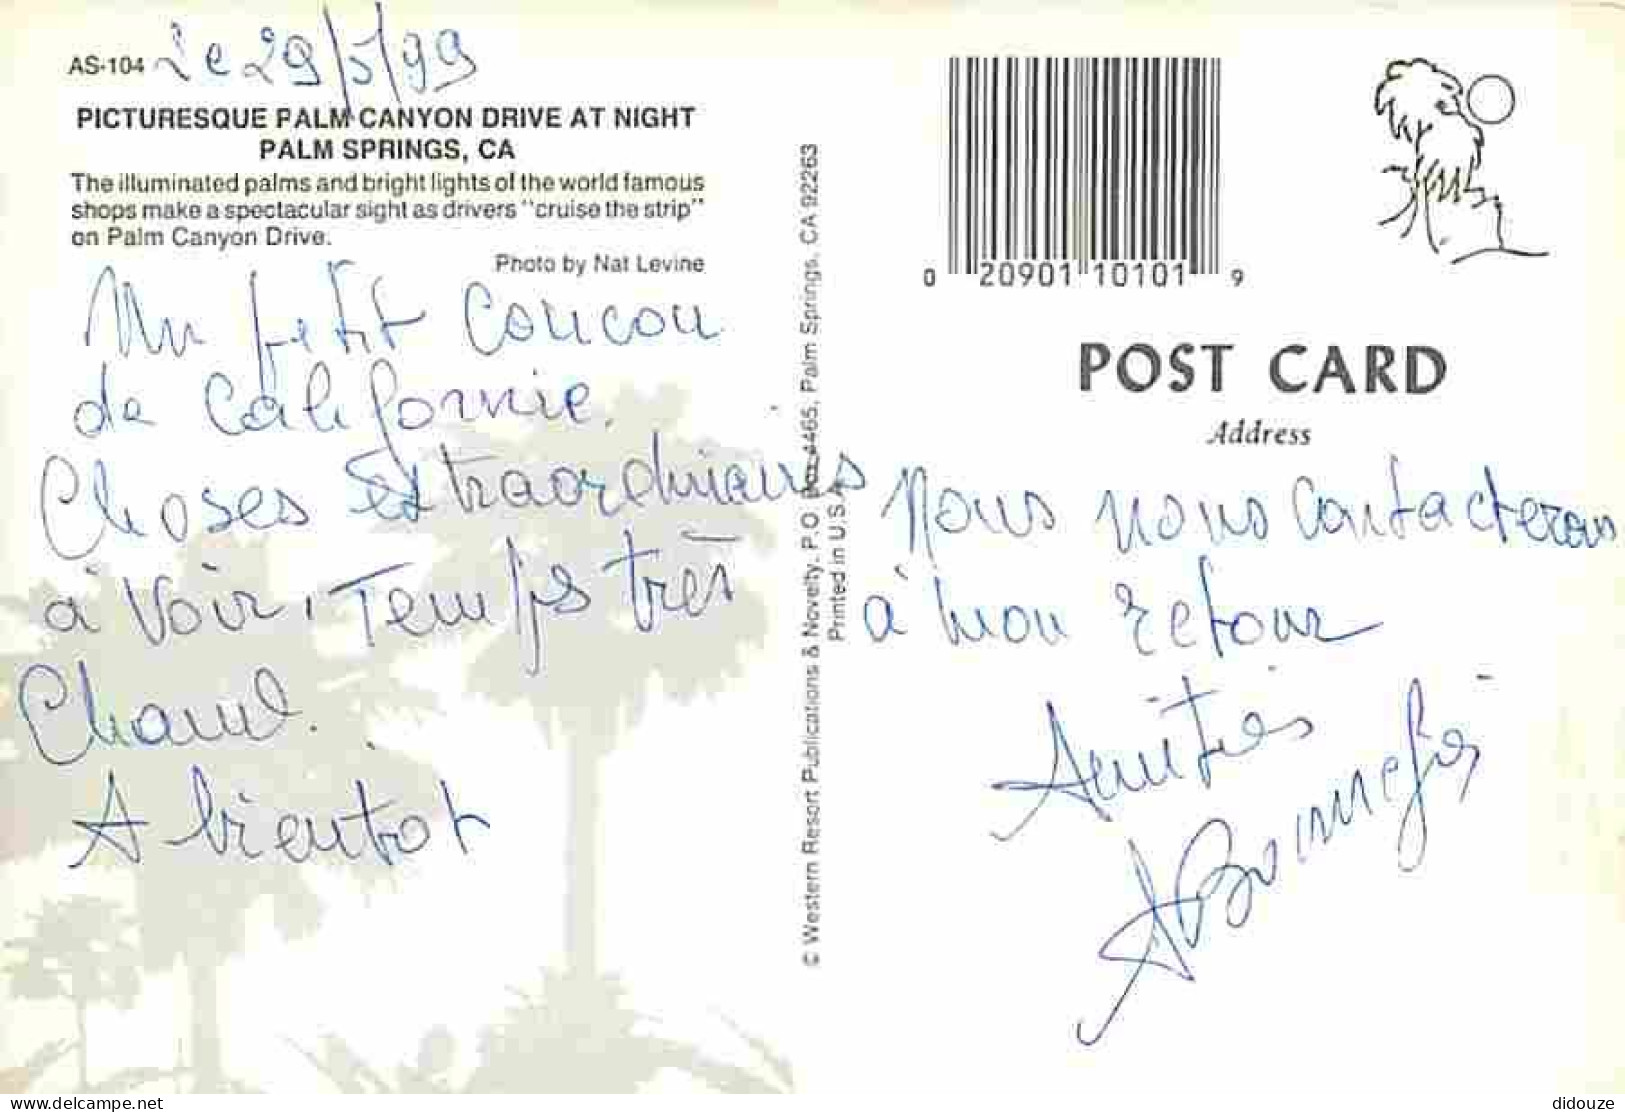 AS-104 Le 29/5/99
PICTURESQUE PALM CANYON DRIVE AT NIGHT
PALM SPRINGS, CA
The illuminated palms and bright lights of the world famous
shops make a spectacular sight as drivers "cruise the strip"
on Palm Canyon Drive.
Photo by Nat Levine
Un petit Coucou
de Californie.
Choses extraordinaires
à voir, Temps très
Chaud.
A bientot
© Western Resort Publications & Novelty, P.O. Box 4465, Palm Springs, CA 92263
Printed in U.S.A.
0 20901 10101 9
POST CARD
Address
Nous nous Contacterons
à mon retour
Amitiés
didouze